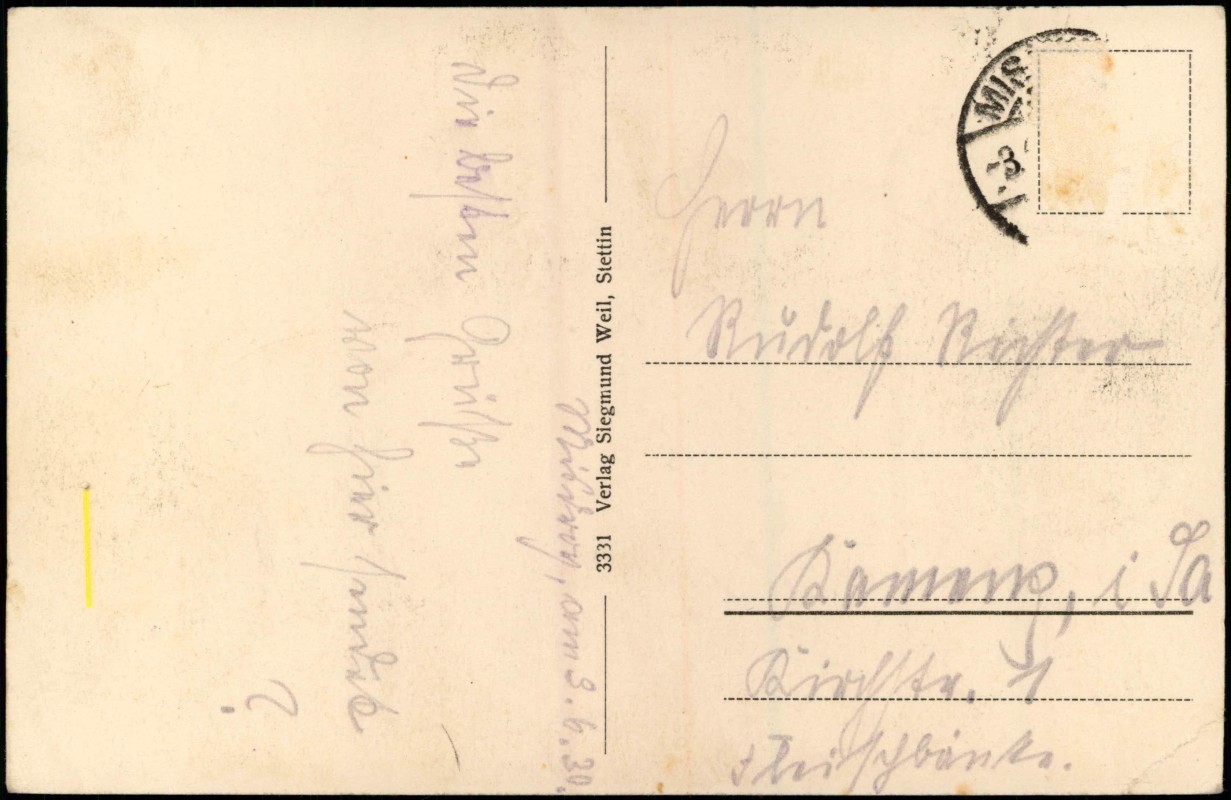 Misdroy, am 3. 6. 30.
Die besten Grüße
von hier sendet
?
3331 Verlag Siegmund Weil, Stettin
MIS
-3.
Herrn
Rudolf Richter
Kamenz, i Sa
Kirchstr. 1
Fleischbänke.